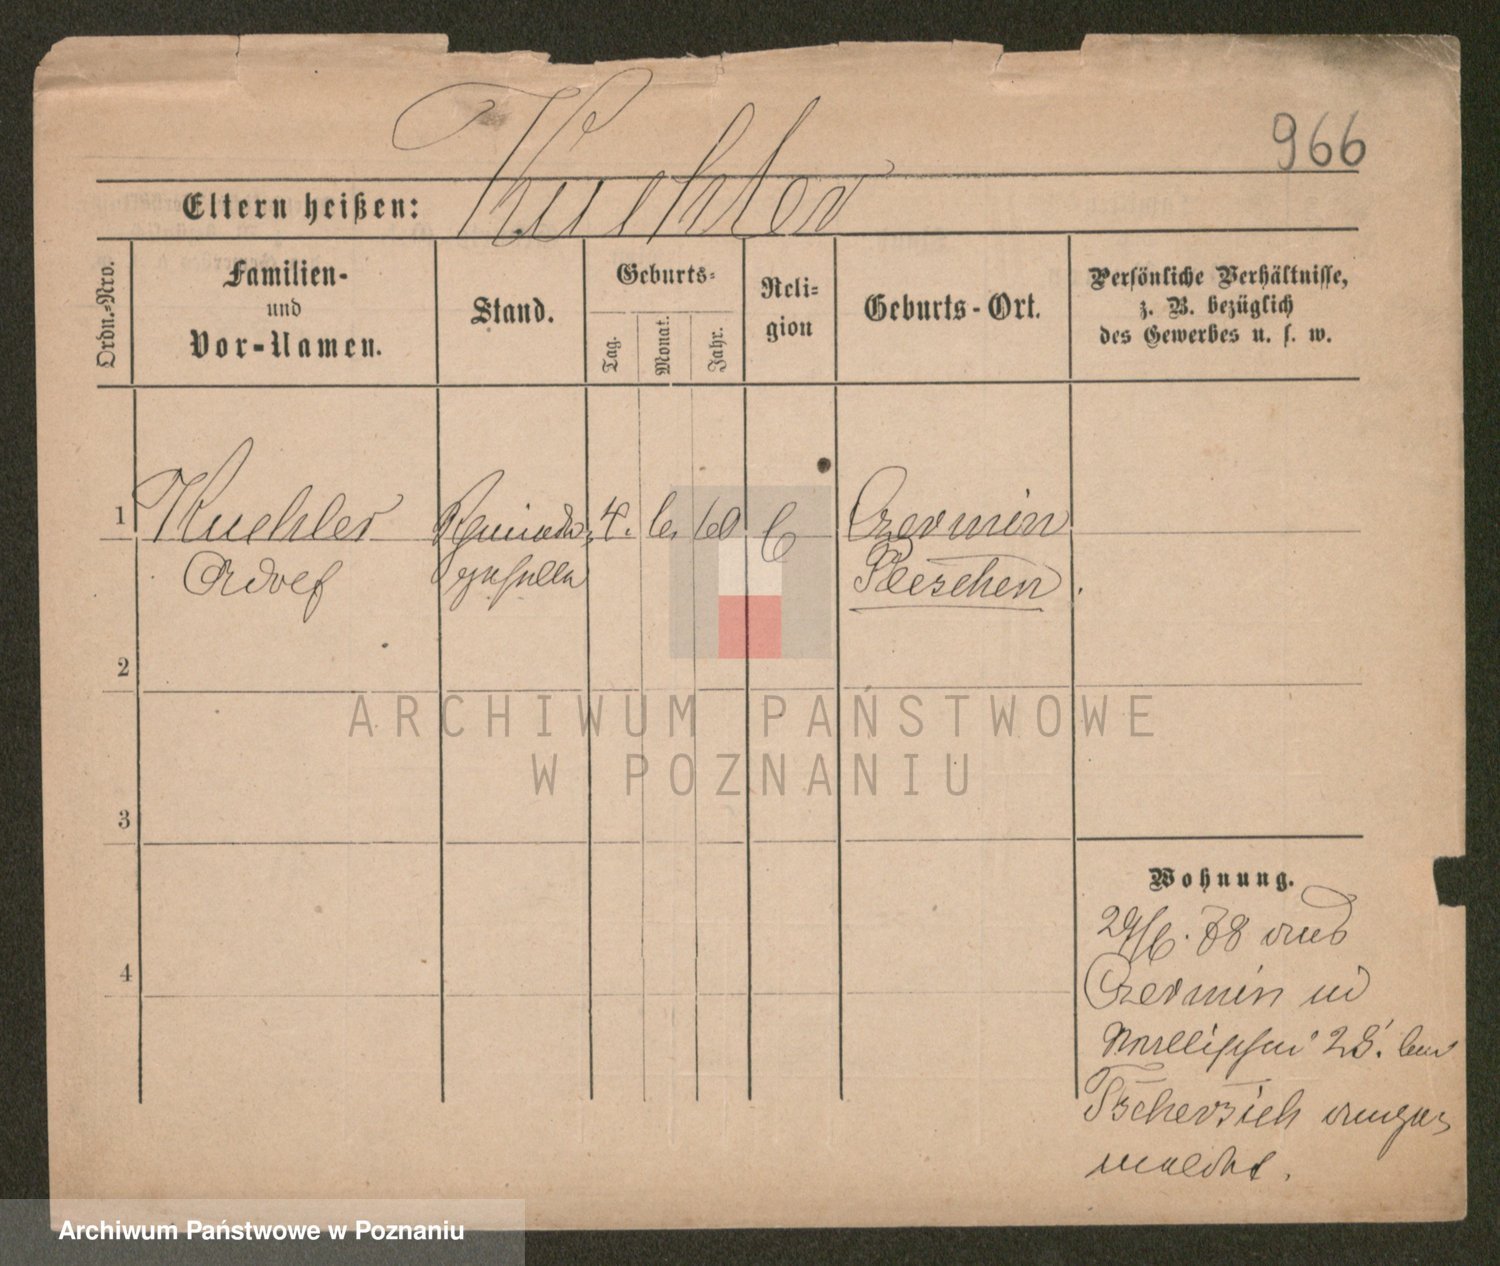 966
Kuehler
Eltern heißen:
Ordn.-Nro.
Familien-
und
Vor-Namen.
Stand.
Geburts-
Tag.
Monat.
Jahr.
Reli-
gion
Geburts-Ort.
Persönliche Verhältnisse,
z. B. bezüglich
des Gewerbes u. s. w.
1
Kuehler
Adolf
4. 6. 60
Czermin
Pleschen
2
3
4
Wohnung.
29/6. 78 aus
Czermin
28. bei
Tscherzich ange-
meldet.
ARCHIWUM PAŃSTWOWE
W POZNANIU
Archiwum Państwowe w Poznaniu